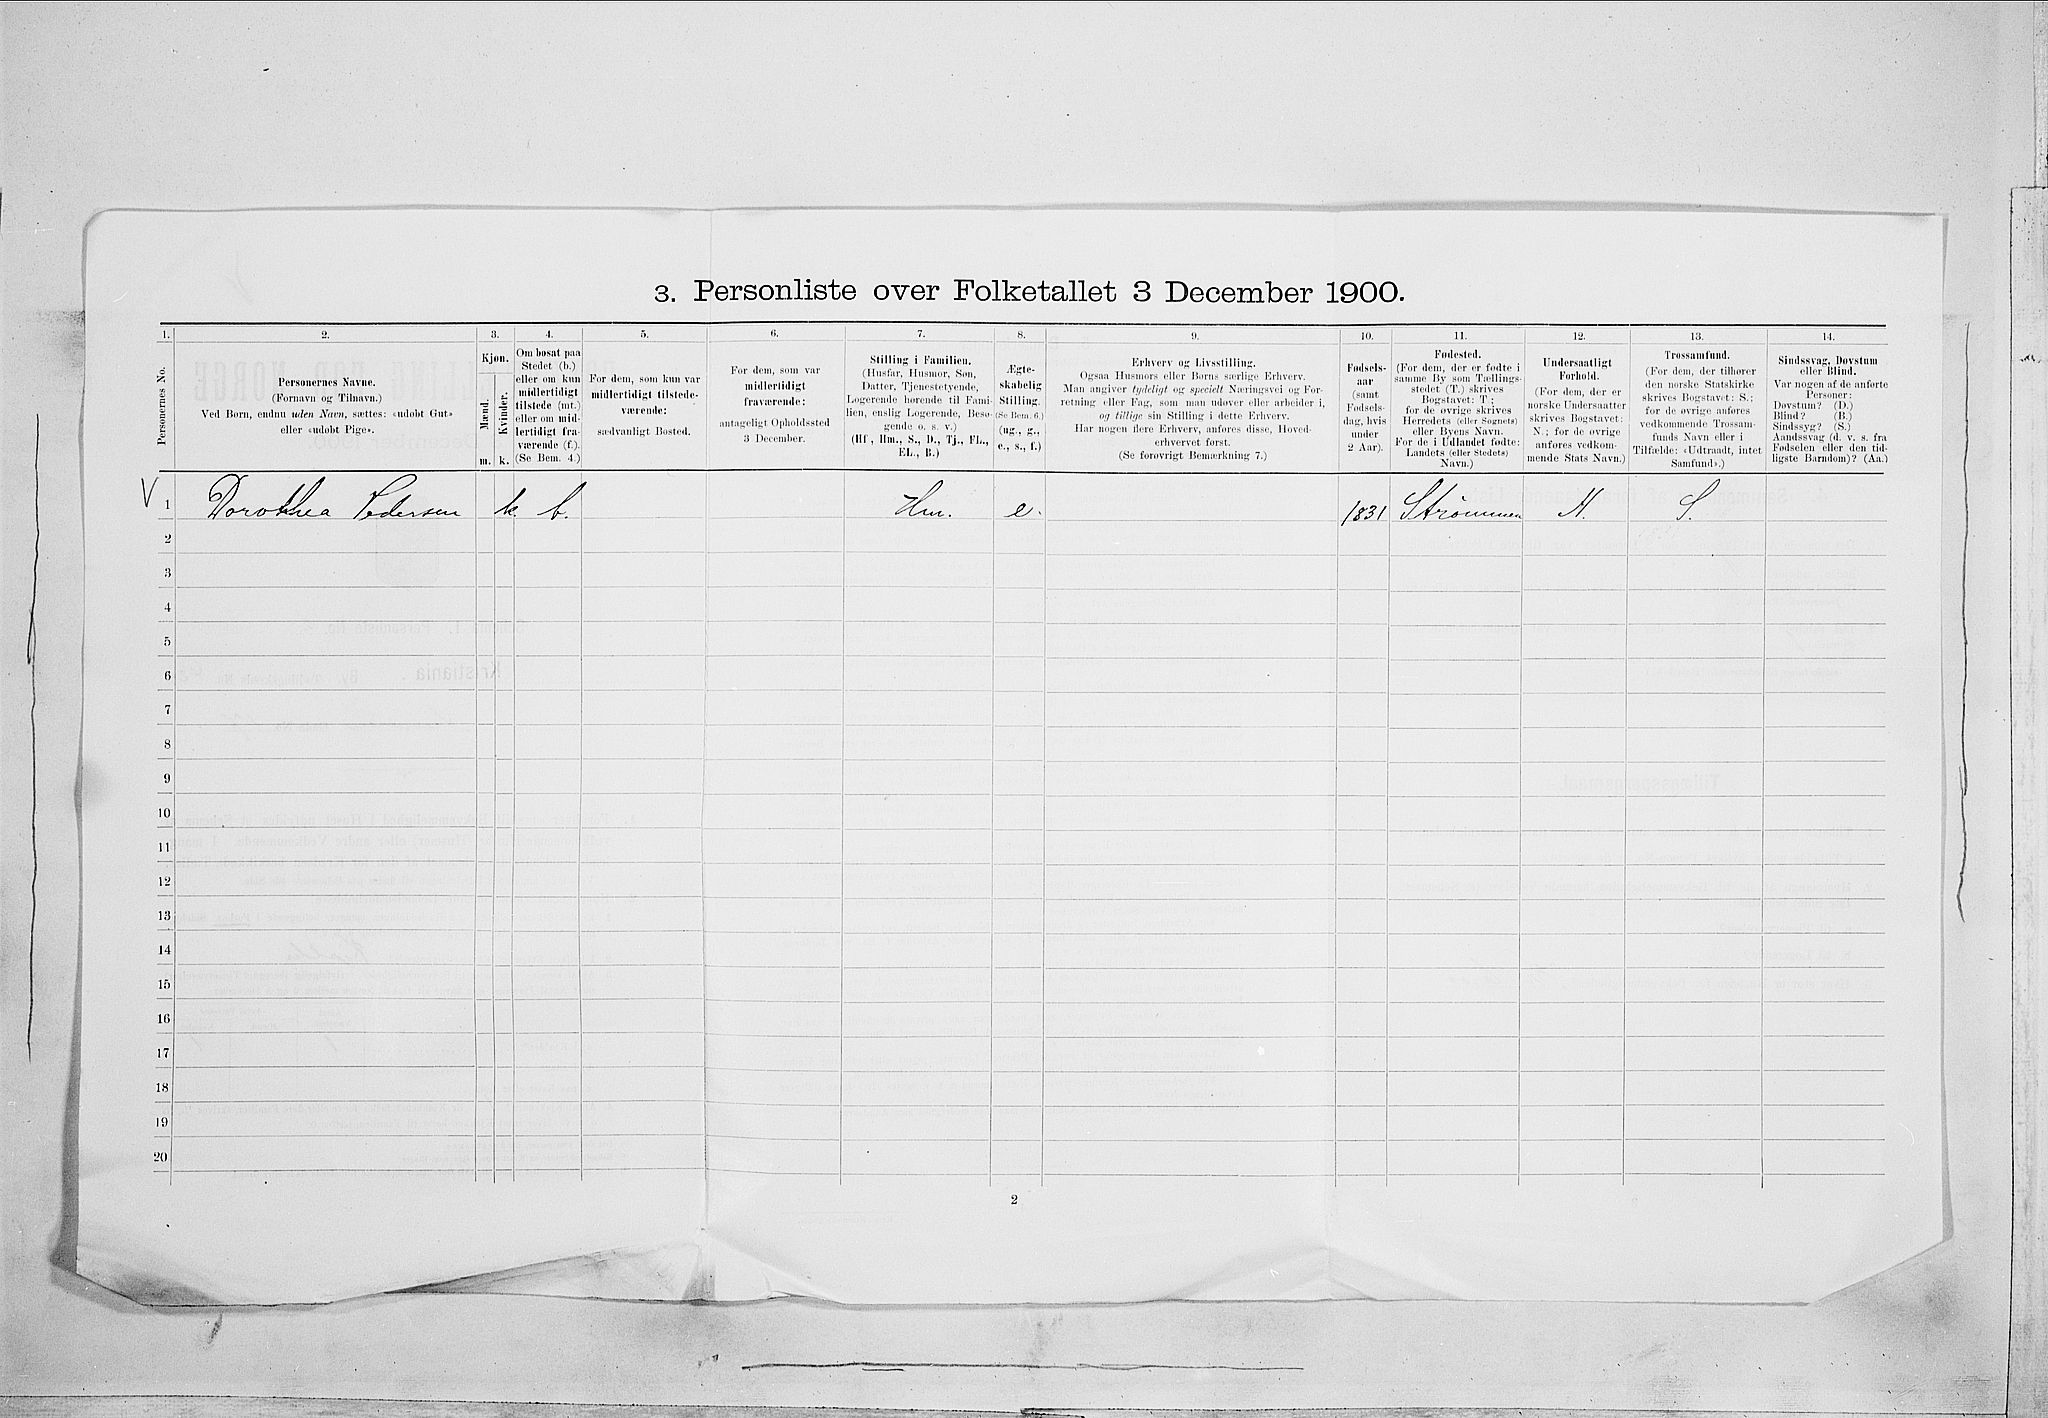 3. Personliste over Folketallet 3 December 1900.
1. 2. 3. 4. 5. 6. 7. 8. 9. 10. 11. 12. 13. 14.
Personernes No.
Personernes Navne.
(Fornavn og Tilnavn.)
Ved Børn, endnu uden Navn, sættes: «udøbt Gut»
eller «udøbt Pige».
Kjøn.
Mænd.
Kvinder.
m. k.
Om bosat paa
Stedet (b.)
eller om kun
midlertidigt
tilstede (mt.)
eller om mid-
lertidigt fra-
værende (f.).
(Se Bem. 4.)
For dem, som kun var
midlertidigt tilstede-
værende:
sædvanligt Bosted.
For dem, som var
midlertidigt
fraværende:
antageligt Opholdssted
3 December.
Stilling i Familien.
(Husfar, Husmor, Søn,
Datter, Tjenestetyende,
Logerende hørende til Fami-
lien, enslig Logerende, Besø-
gende o. s. v.)
(Hf, Hm., S., D., Tj., FL.,
EL., B.)
Ægte-
skabelig
Stilling.
(Se Bem. 6.)
(ug., g.,
e., s., f.)
Erhverv og Livsstilling.
Ogsaa Husmors eller Børns særlige Erhverv.
Man angiver tydeligt og specielt Næringsvei og For-
retning eller Fag, som man udøver eller arbeider i,
og tillige sin Stilling i dette Erhverv.
Har nogen flere Erhverv, anføres disse, Hoved-
erhvervet først.
(Se forøvrigt Bemærkning 7.)
Fødsels-
aar
(samt
Fødsels-
dag, hvis
under
2 Aar).
Fødested.
(For dem, der er fødte i
samme By som Tællings-
stedet (T.) skrives
Bogstavet: T.;
for de øvrige skrives
Herredets (eller Sognets)
eller Byens Navn.
For de i Udlandet fødte:
Landets (eller Stedets)
Navn.)
Undersaatligt
Forhold.
(For dem, der er
norske Undersaatter
skrives Bogstavet:
N.; for de øvrige
anføres vedkom-
mende Stats Navn.)
Trossamfund.
(For dem, der tilhører
den norske Statskirke
skrives Bogstavet: S.;
for de øvrige anføres
vedkommende Trossam-
funds Navn eller i
Tilfælde: «Udtraadt, intet
Samfund».)
Sindssvag, Døvstum
eller Blind.
Var nogen af de anførte
Personer:
Døvstum? (D.)
Blind? (B.)
Sindssyg? (S.)
Aandssvag (d. v. s. fra
Fødselen eller den tid-
ligste Barndom)? (Aa.)
V 1 Dorothea Pedersen k. b. Hm. e. 1831 Strømmen N. S.
2
3
4
5
6
7
8
9
10
11
12
13
14
15
16
17
18
19
20
2